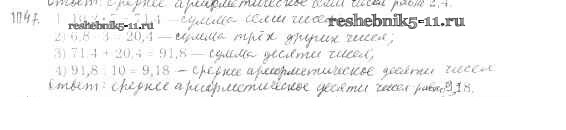 Ответ: среднее арифметическое семи чисел равно 2,4.
1147.
reshebnik5-11.ru
4 – сумма семи чисел
2) 6,8 · 3 = 20,4 – сумма трёх других чисел;
3) 71,4 + 20,4 = 91,8 – сумма десяти чисел;
4) 91,8 : 10 = 9,18 – среднее арифметическое десяти чисел.
Ответ: среднее арифметическое десяти чисел равно 9,18.
reshebnik5-11.ru